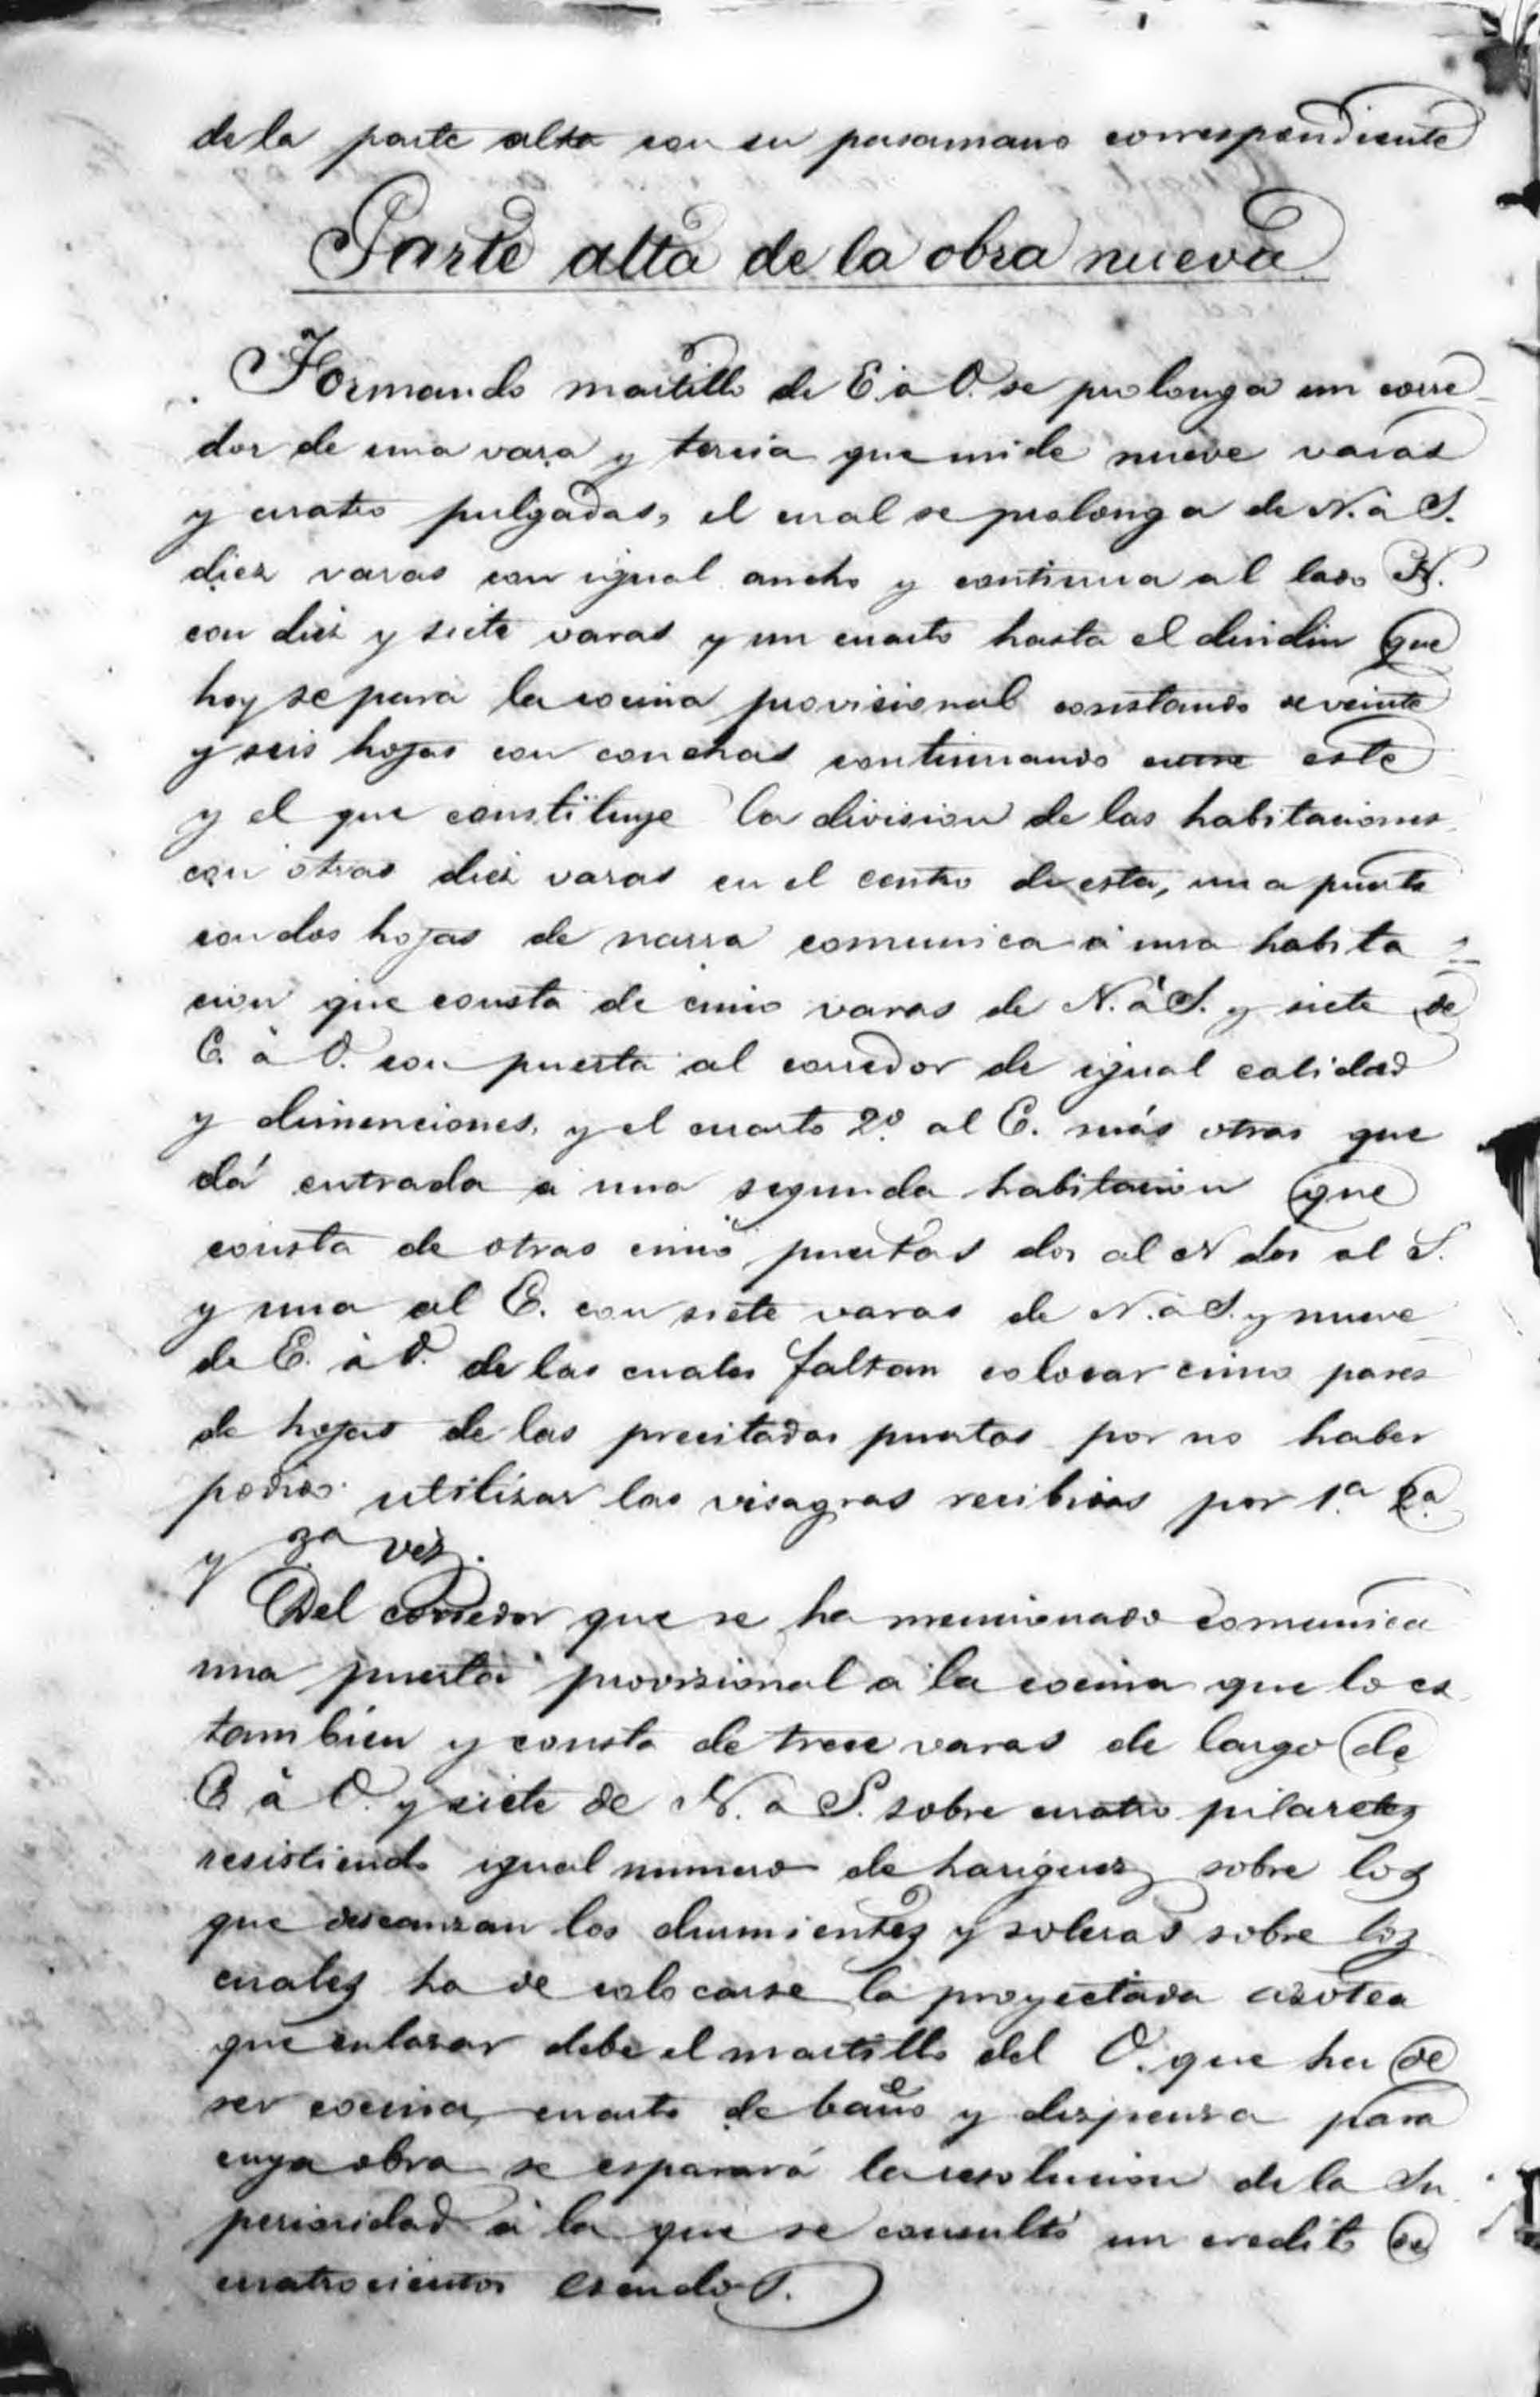 de la parte alta con su pasamano correspondiente
Parte alta de la obra nueva
Formando martillo de E. á O. se prolonga un corre
dor de una vara y tercia que mide nueve varas
y cuatro pulgadas, el cual se prolonga de N. a S.
diez varas con igual ancho y continua al lado N.
con diez y siete varas y un cuarto hasta el dindin que
hoy separa la cocina provisional constando de veinte
y seis hojas con conchas continuando entre este
y el que constituye la division de las habitaciones
con otras diez varas en el centro de esta, una puerta
con dos hojas de narra comunica á una habita
cion que consta de cinco varas de N. á S. y siete de
E. á O. con puerta al corredor de igual calidad
y dimenciones, y el cuarto 2º al E. más otras que
dá entrada a una segunda habitacion que
consta de otras cinco puertas dos al N dos al S.
y una al E. con siete varas de N. a S. y nueve
de E. á O. de las cuales faltan colocar cinco pares
de hojas de las precitadas puertas por no haber
podido utilizar las visagras recibidas por 1.ª 2.ª
y 3.ª vez.
Del corredor que se ha mencionado comunica
una puerta provisional a la cocina que lo es
tambien y consta de trece varas de largo de
E. á O. y siete de N. a S. sobre cuatro pilaretes
resistiendo igual numero de harigues sobre los
que descanzan los durmientes y soleras sobre los
cuales ha de colocarse la proyectada azotea
que enlazar debe el martillo del O. que ha de
ser cocina, cuarto de baño y dispensa para
cuya obra se esparará la resolucion de la Su
perioridad á la que se consultó un credito de
cuatrocientos escudos.